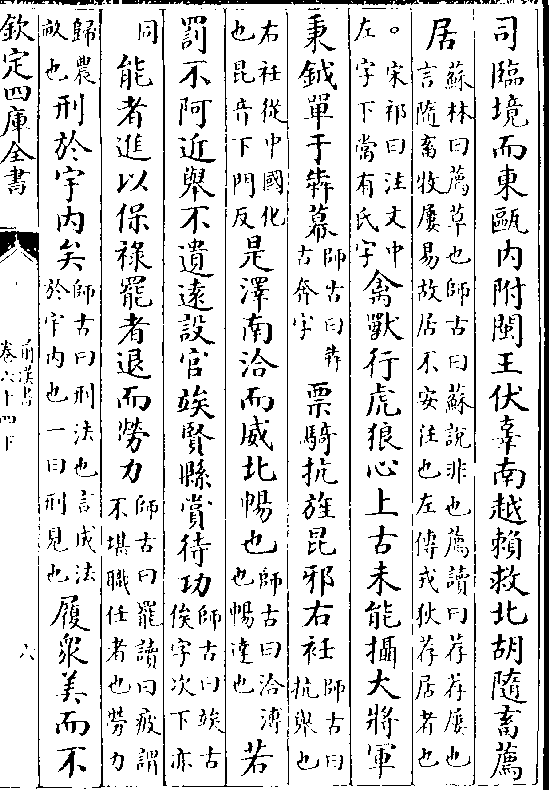 司臨境而東甌内附閩王伏辜南越賴救北胡隨畜薦
居蘇林曰薦草也師古曰蘇說非也薦讀曰荐荐屢也
言隨畜牧屢易故居不安住也左傳戎狄荐居者也
。宋祁曰注文中
左字下當有氏字禽獸行虎狼心上古未能攝大將軍
秉鉞單于犇幕師古曰犇
古奔字票騎抗旌昆邪右衽師古曰
抗舉也
右衽從中國化
也昆音下門反是澤南洽而威北暢也師古曰洽溥
也暢達也若
罰不阿近舉不遺遠設官竢賢縣賞待功師古曰竢古
俟字次下亦
同能者進以保祿罷者退而勞力師古曰罷讀曰疲謂
不堪職任者也勞力
歸農
畝也刑於宇内矣師古曰刑法也言成法
於宇内也一曰刑見也履衆美而不
欽定四庫全書
前漢書
卷六十四下
六